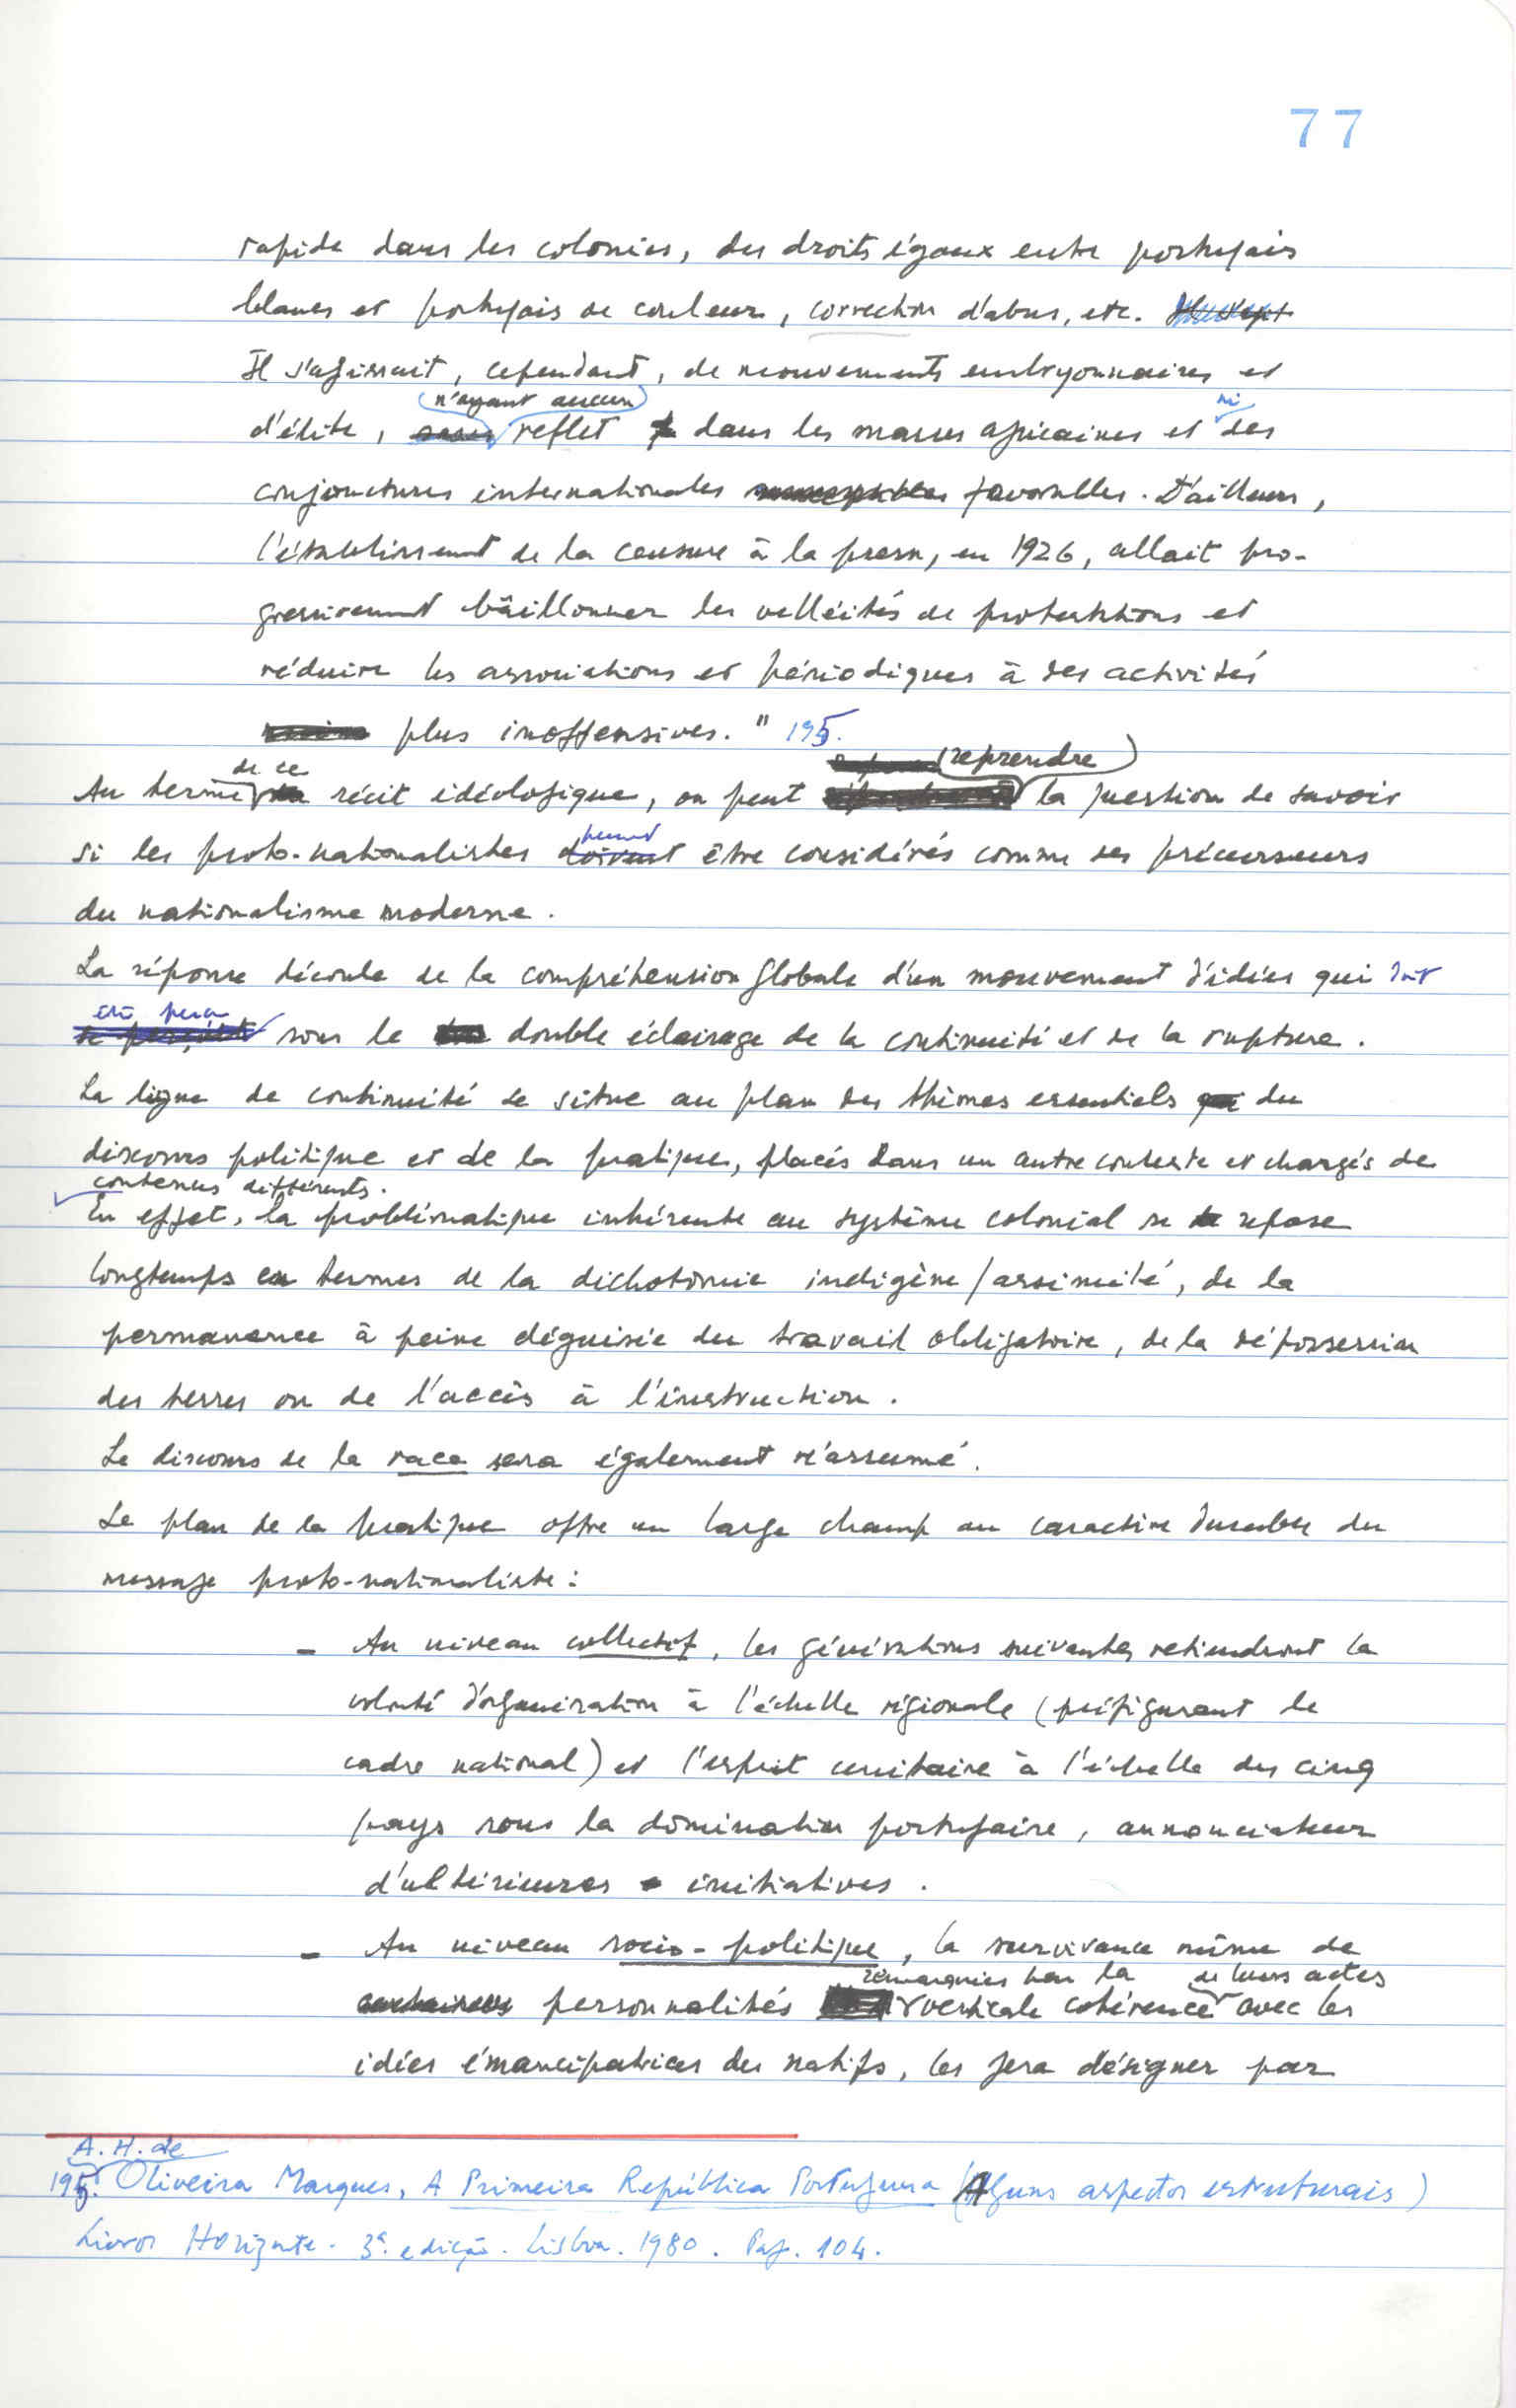 77
rapide dans les colonies, des droits égaux entre portugais
blancs et portugais de couleur, correction d'abus, etc.
Il s'agissait, cependant, de mouvements embryonnaires et
n'ayant aucun ni
d'élite, sans reflet dans les masses africaines et des
conjonctures internationales susceptibles favorables. D'ailleurs,
l'établissement de la censure à la presse, en 1926, allait pro-
gressivement bâillonner les velléités de protestations et
réduire les associations et périodiques à des activités
plus inoffensives." 195.
reprendre
de ce
Au terme récit idéologique, on peut la question de savoir
peuvent
si les proto-nationalistes doivent être considérés comme des précurseurs
du nationalisme moderne.
La réponse découle de la compréhension globale d'un mouvement d'idées qui doit
être perçu
sous le double éclairage de la continuité et de la rupture.
La ligne de continuité se situe au plan des thèmes essentiels qui du
discours politique et de la pratique, placés dans un autre contexte et chargés de
contenus différents.
En effet, la problématique inhérente au système colonial se repose
longtemps en termes de la dichotomie indigène/assimilé, de la
permanence à peine déguisée du travail obligatoire, de la dépossession
des terres ou de l'accès à l'instruction.
Le discours de la race sera également réassumé.
Le plan de la pratique offre un large champ au caractère durable du
message proto-nationaliste:
- Au niveau collectif, les générations suivantes retiendront la
volonté d'organisation à l'échelle régionale (préfigurant le
cadre national) et l'esprit unitaire à l'échelle des cinq
pays sous la domination portugaise, annonciateur
d'ultérieures initiatives.
- Au niveau socio-politique, la survivance même de
remarquées par la de leurs actes
certaines personnalités verticale cohérence avec les
idées émancipatrices des natifs, les fera désigner par
A. H. de
195. Oliveira Marques, A Primeira República Portuguesa (Alguns aspectos estruturais)
Livros Horizonte. 3ª edição. Lisboa. 1980. Pag. 104.